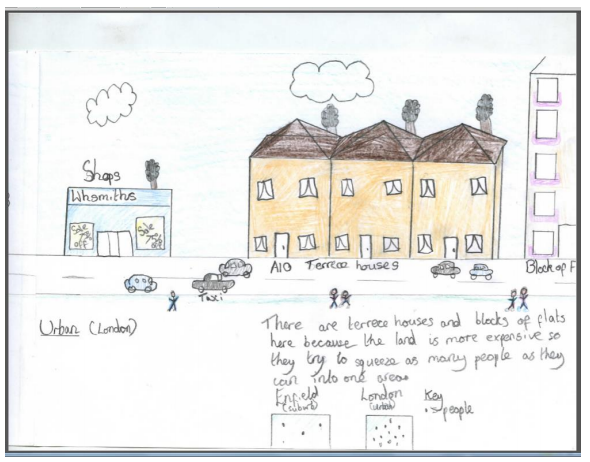 Shops
Whsmiths
Sale
70%
off
Sale
70%
off
A10 Terrece houses
Block of F
Taxi
Urban (London)
There are terrece houses and blocks of flats
here because the land is more expensive so
they try to squeeze as many people as they
can into one area.
Enfield London Key
(suburb) (urban) • = people